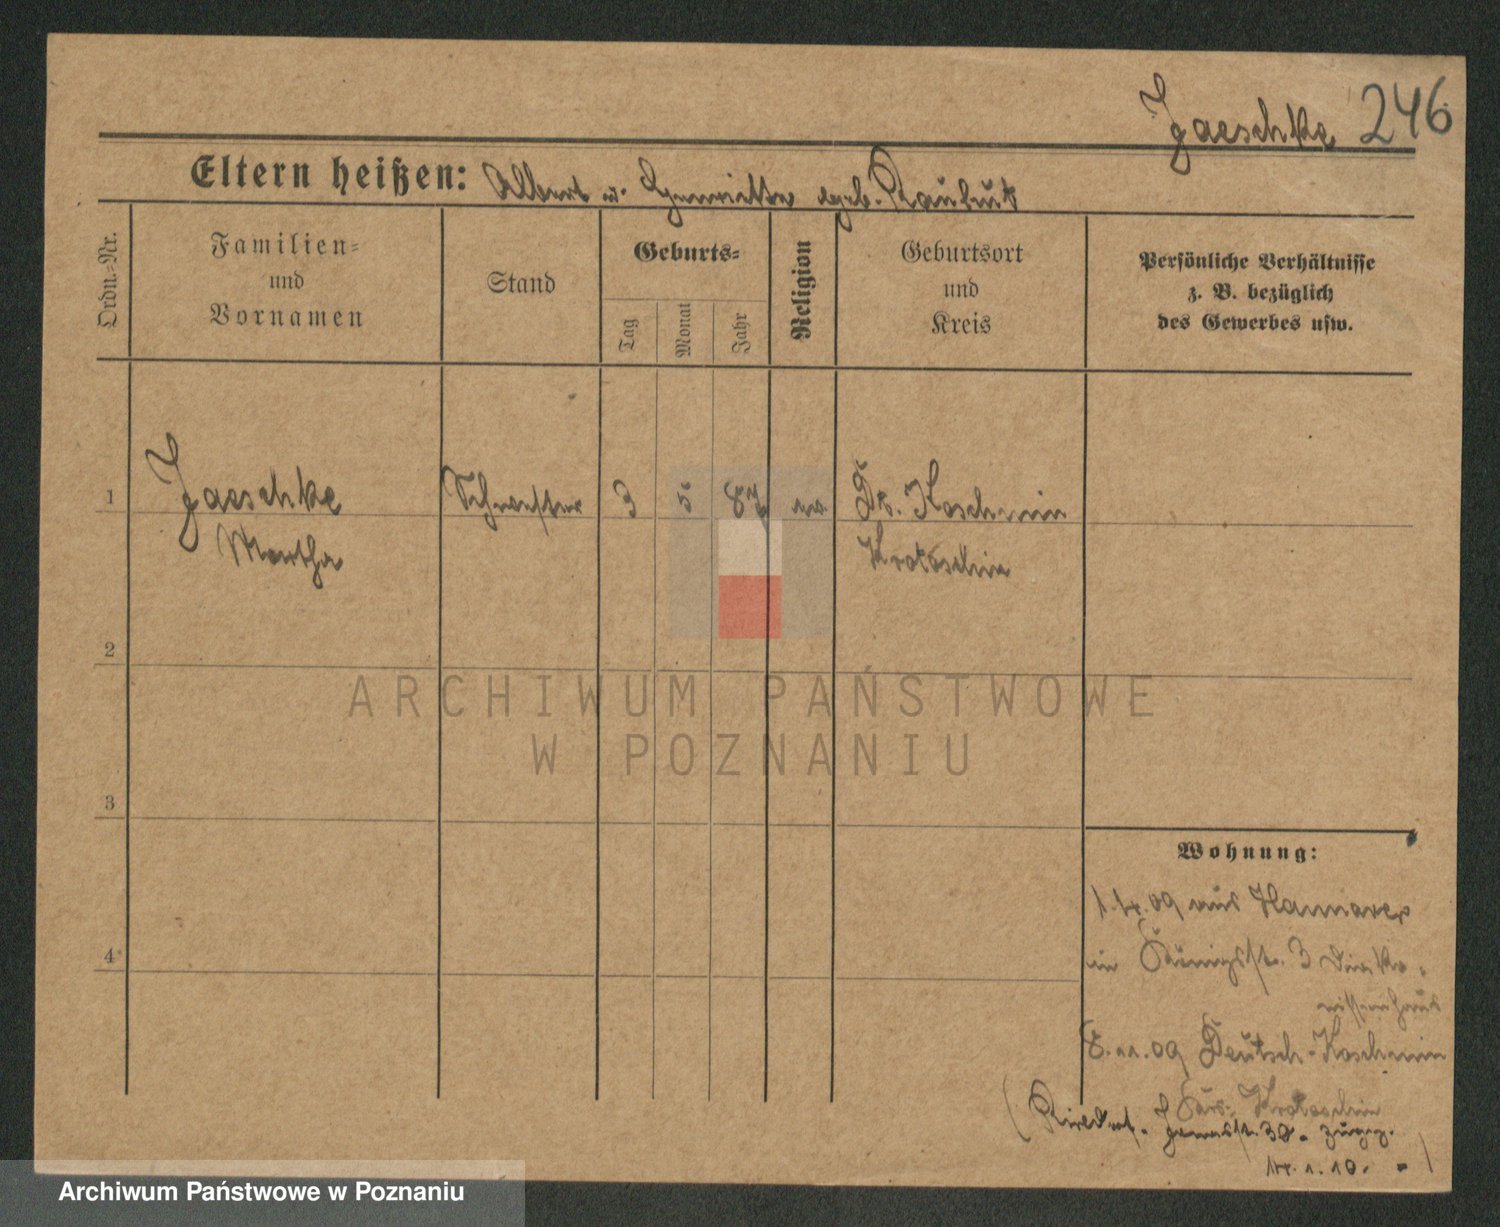 Jaeschke 246
Eltern heißen: Albert u. Henriette geb. Raubut
Ordn.-Nr.
Familien-
und
Vornamen
Stand
Geburts-
Tag
Monat
Jahr
Religion
Geburtsort
und
Kreis
Persönliche Verhältnisse
z. B. bezüglich
des Gewerbes usw.
1 Jaeschke Schwester 3 5 87 ev. Dt. Koschmin
Martha Krotoschin
2
3
4
ARCHIWUM PAŃSTWOWE
W POZNANIU
Wohnung:
1.4.09 aus Hannover
in Königsstr. 3 Diako-
nissenhaus
8.11.09 Deutsch-Koschmin
Krs. Krotoschin
38 - zugez.
14.1.10. -)
Archiwum Państwowe w Poznaniu